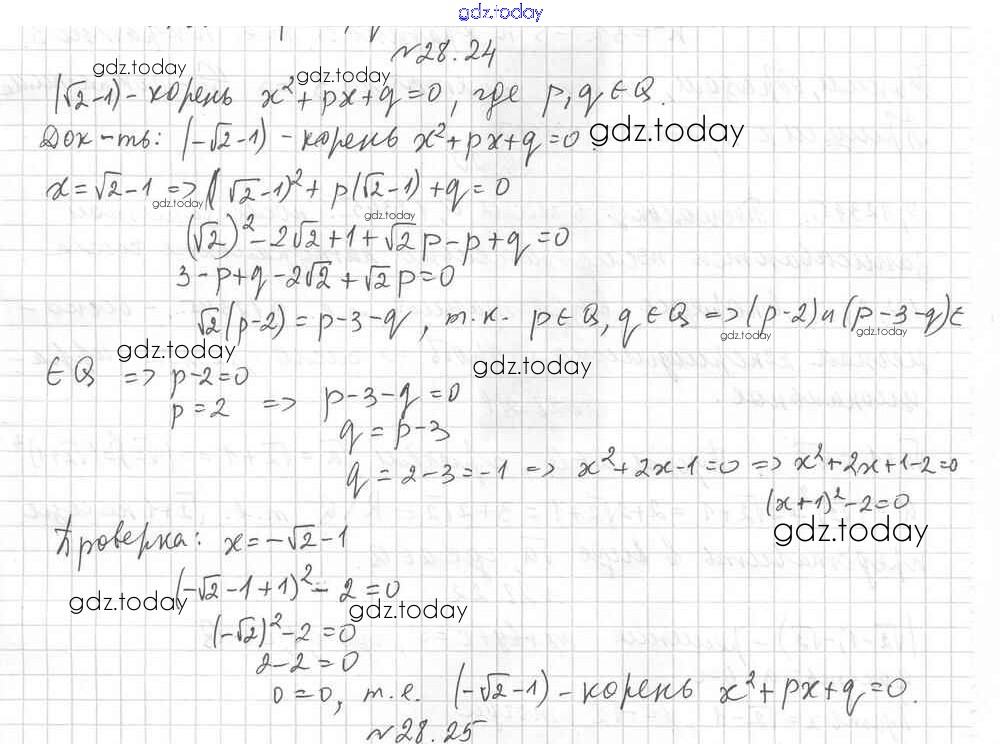 gdz.today
№28.24
gdz.today
gdz.today
(√2-1) - корень x²+px+q=0, где p,q∈Q.
Док-ть: (-√2-1) - корень x²+px+q=0
gdz.today
x=√2-1 => (√2-1)²+p(√2-1)+q=0
gdz.today
gdz.today
(√2)²-2√2+1+√2p-p+q=0
3-p+q-2√2+√2p=0
√2(p-2)=p-3-q, т.к. p∈Q, q∈Q => (p-2) и (p-3-q)∈
gdz.today
gdz.today
gdz.today
gdz.today
∈Q => p-2=0
p=2 => p-3-q=0
q=p-3
q=2-3=-1 => x²+2x-1=0 => x²+2x+1-2=0
(x+1)²-2=0
gdz.today
Проверка: x=-√2-1
(-√2-1+1)²-2=0
gdz.today
gdz.today
(-√2)²-2=0
2-2=0
0=0, т.е. (-√2-1) - корень x²+px+q=0.
№28.25